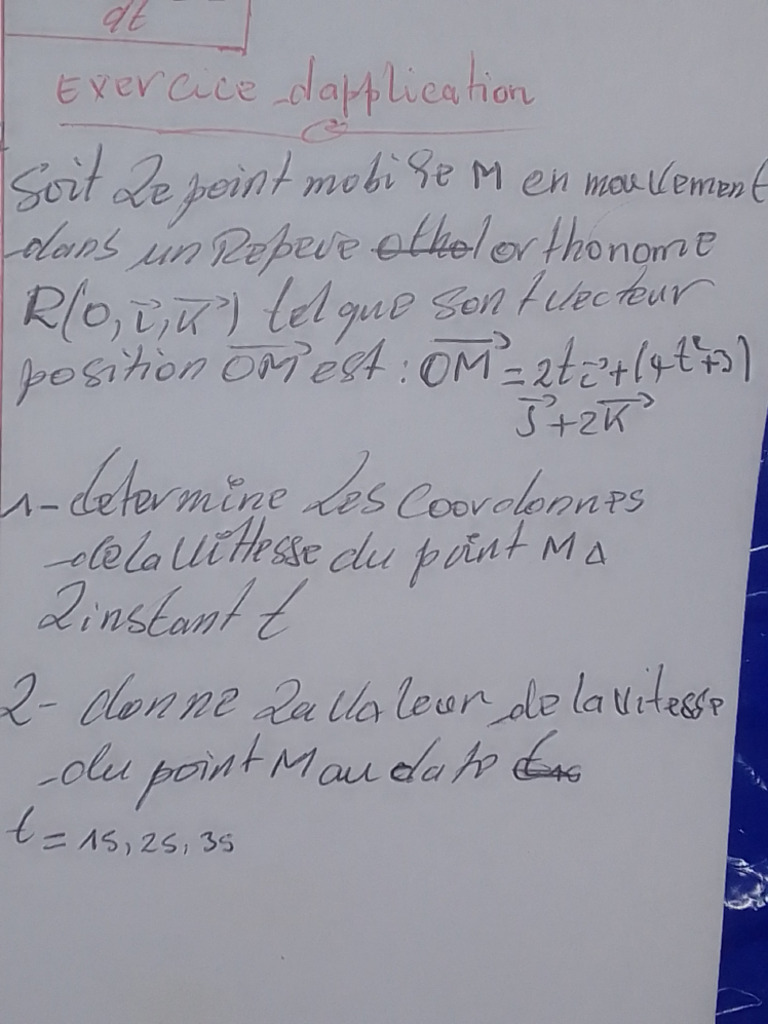 dt
Exercice dapplication
Soit le point mobile M en mouvement
dans un Repere orthonome
R(0, i, k) tel que son vecteur
position OM est : OM = 2t i + (4t²+3)
J + 2K
1- determine les Coordonnes
de la vittesse du point M Δ
l instant t
2- donne la valeur de la vitesse
du point M au date
t = 1s, 2s, 3s